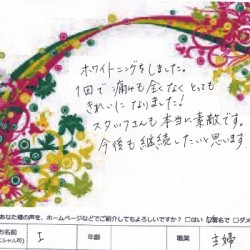 ホワイトニングをしました。
1回で痛みも全くなく とっても
きれいに なりました!
スタッフさんも本当に素敵です。
今後も継続したいと思います
あなた様の声を、ホームページなどでご紹介してもよろしいですか? □はい □匿名で □ダメ
お名前 I 年齢 職業 主婦